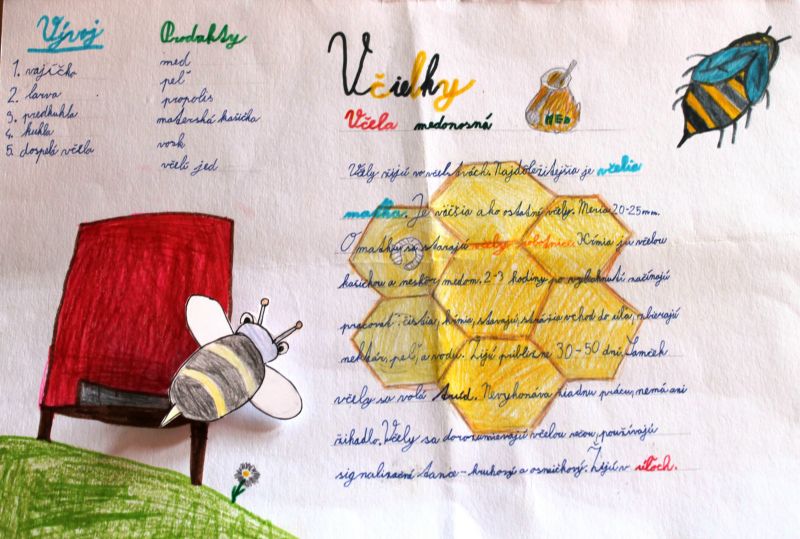 Vývoj
1. vajíčko
2. larva
3. predkukla
4. kukla
5. dospelá včela
Produkty
med
peľ
propolis
materská kašička
vosk
včelí jed
Včielky
Včela medonosná
MED
Včely žijú vo včelstvách. Najdôležitejšia je včelia
matka. Je väčšia ako ostatné včely. Meria 20-25 mm.
O matku sa starajú včely robotnice. Kŕmia ju včelou
kašičkou a neskôr medom. 2-3 hodiny po vyliahnutí začínajú
pracovať: čistia, kŕmia, stavajú, strážia vchod do úľa, zbierajú
nektár, peľ a vodu. Žijú približne 30-50 dní. Samček
včely sa volá trúd. Nevykonáva žiadnu prácu, nemá ani
žihadlo. Včely sa dorozumievajú včelou rečou, používajú
signalizačné tance - kruhový a osmičkový. Žijú v úľoch.